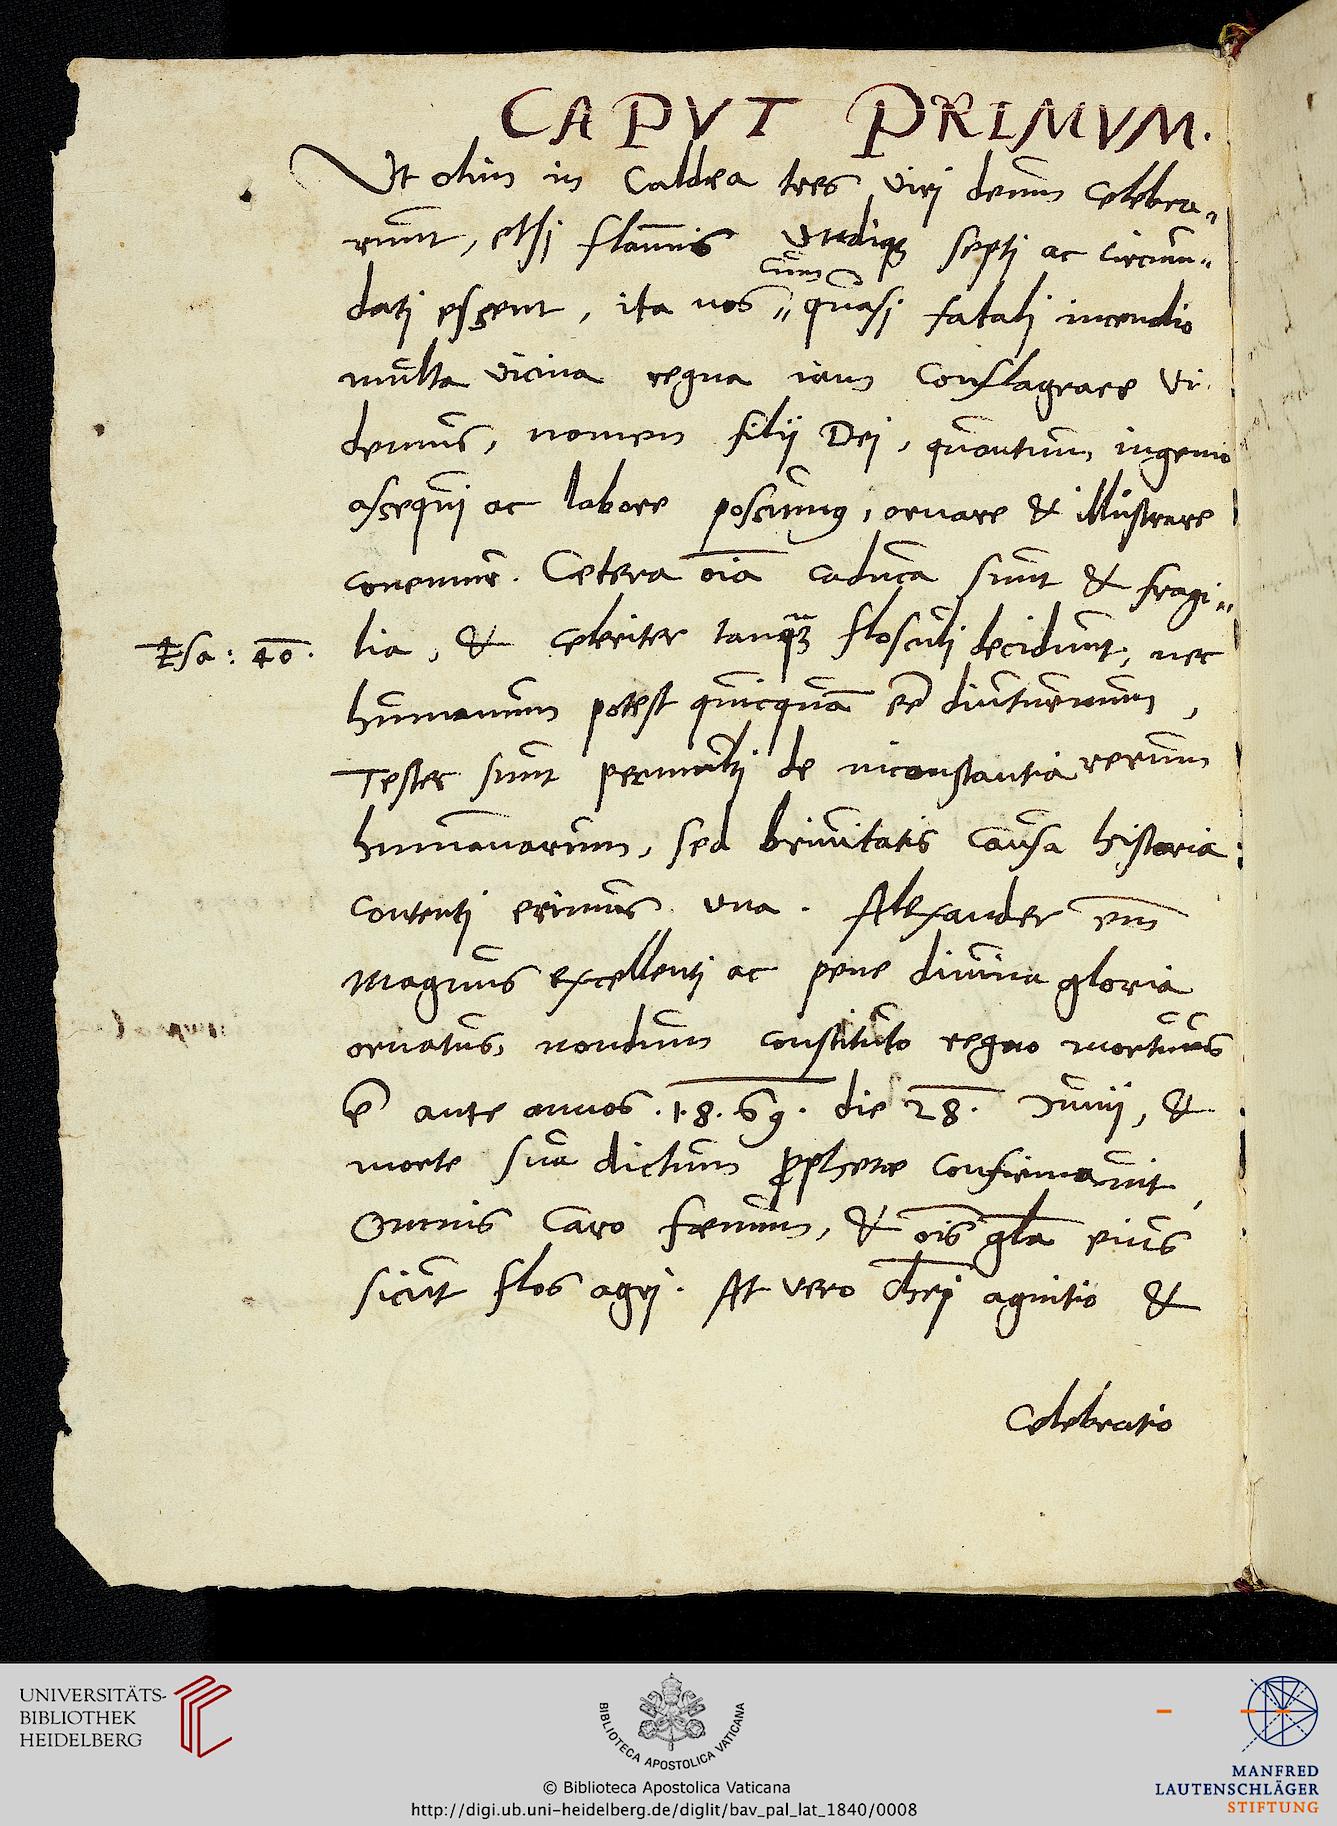 CAPVT PRIMVM.
Ut olim in Caldæa tres viri deum celebra„
runt, etsi flam̄is vndiqꝫ septi ac circum„
cum
dati essent, ita nos „ quasi fatali incendio
multa vicina regna iam conflagrare vi.
demus, nomen filij Dei, quantum ingenio
assequi ac labore possumꝰ, ornare & illustrare
conemur. Cætera oīa caduca sunt & fragi„
Esa: 40.
lia, & celeriter tanqꝫ̄ flosculi decidunt, nec
humanum potest quicquā eē diuturnum,
Testes sunt permulti de inconstantia rerum
humanarum, sed breuitatis causa historia
contenti erimus vna. Alexander em̄
magnus excellenti ac pene diuina gloria
ornatus, nondum constituto regno mortuus
ē ante annos .1.8.69. die 28. Junij, &
morte sua dictum ꝓphetæ confirmauit,
Omnis caro fœnum, & oīs gl̄a eius
sicut flos agri. At vero chr̄i agnitio &
Celebratio
UNIVERSITÄTS-
BIBLIOTHEK
HEIDELBERG
BIBLIOTECA APOSTOLICA VATICANA
© Biblioteca Apostolica Vaticana
http://digi.ub.uni-heidelberg.de/diglit/bav_pal_lat_1840/0008
MANFRED
LAUTENSCHLÄGER
STIFTUNG